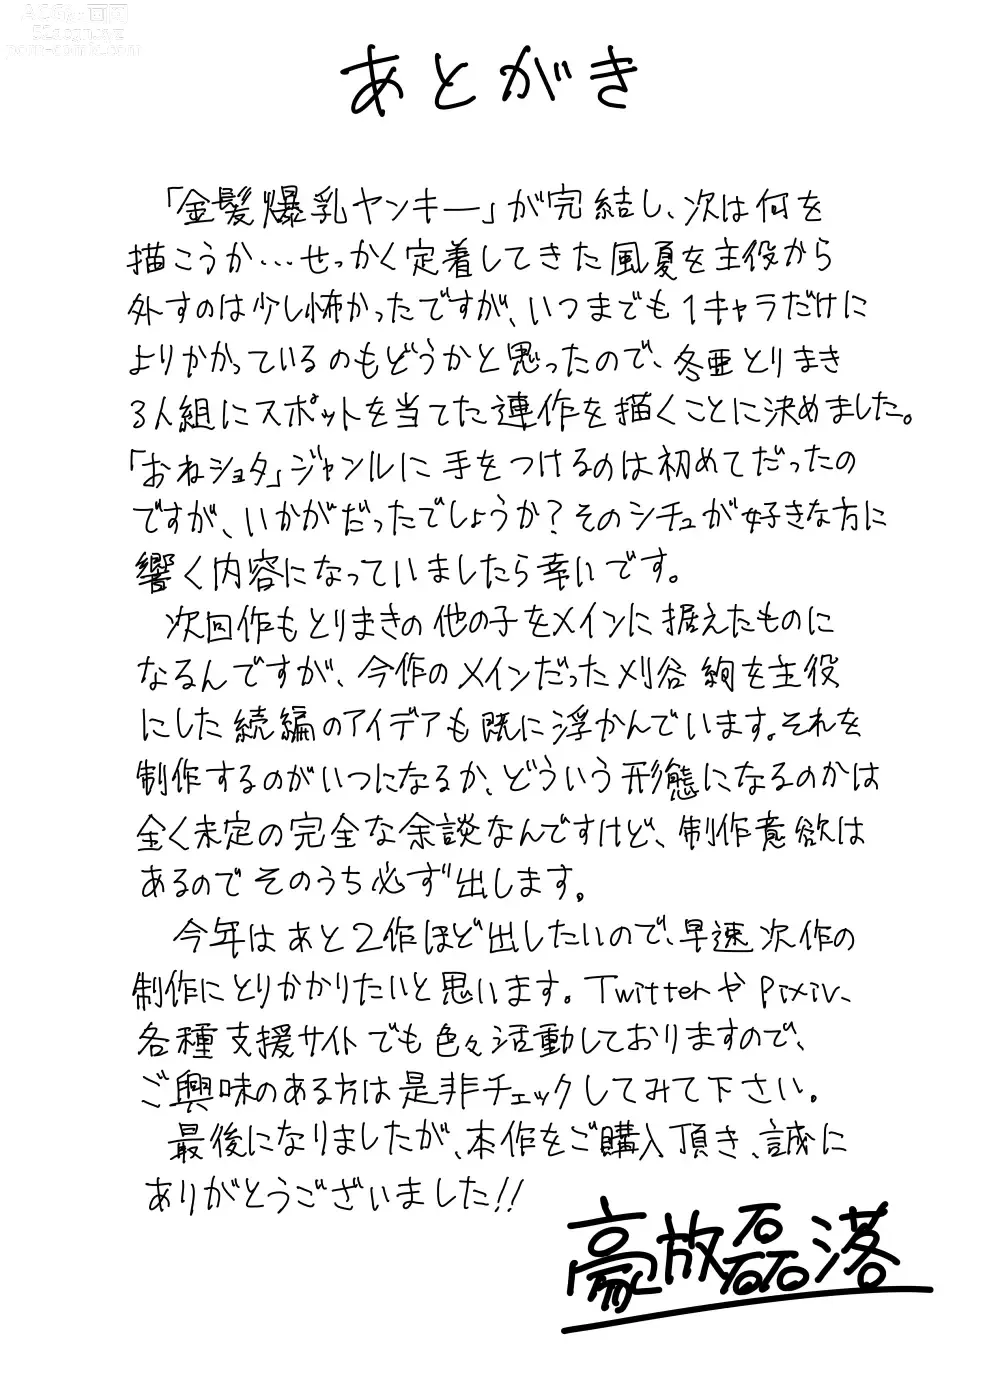 ACG资画网
52acgncwz
porn-comik.com
あとがき
「金髪爆乳ヤンキー」が完結し、次は何を
描こうか…せっかく定着してきた風夏を主役から
外すのは少し怖かったですが、いつまでも1キャラだけに
よりかかっているのもどうかと思ったので、冬亜とりまき
3人組にスポットを当てた連作を描くことに決めました。
「おねショタ」ジャンルに手をつけるのは初めてだったの
ですが、いかがだったでしょうか?そのシチュが好きな方に
響く内容になっていましたら幸いです。
次回作もとりまきの他の子をメインに据えたものに
なるんですが、今作のメインだった刈谷絢を主役
にした続編のアイデアも既に浮かんでいます。それを
制作するのがいつになるか、どういう形態になるのかは
全く未定の完全な余談なんですけど、制作意欲は
あるのでそのうち必ず出します。
今年はあと2作ほど出したいので、早速次作の
制作にとりかかりたいと思います。TwitterやPixiv、
各種支援サイトでも色々活動しておりますので、
ご興味のある方は是非チェックしてみて下さい。
最後になりましたが、本作をご購入頂き、誠に
ありがとうございました!!
豪放磊落